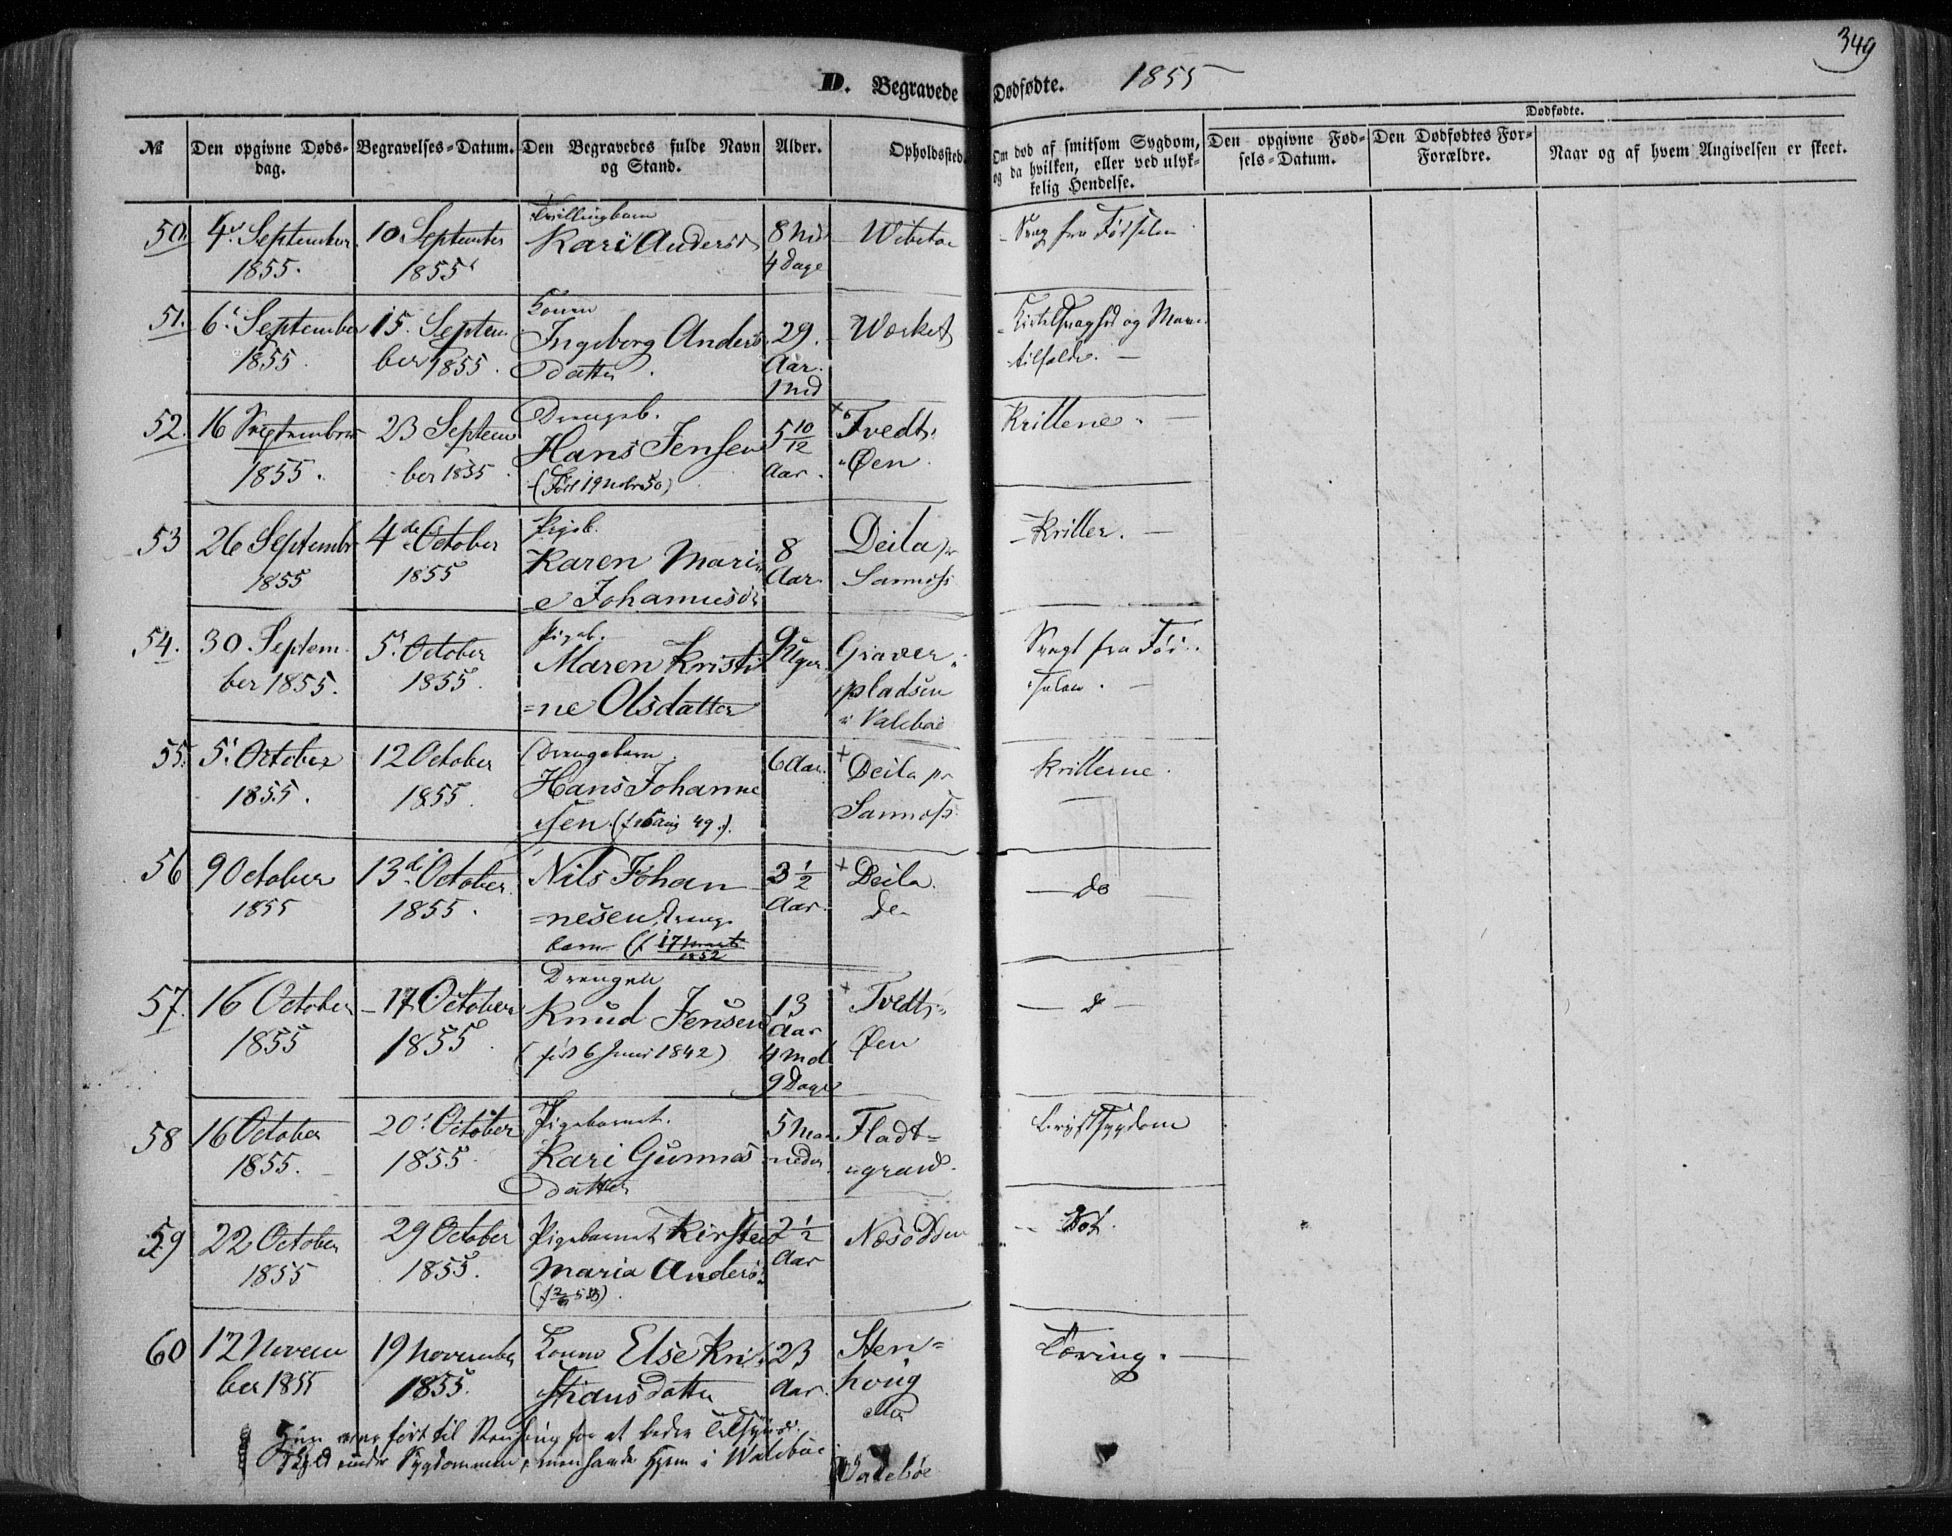 349
D. Begravede Dødfødte. 1855
Dødfødte.
№
Den opgivne Døds-
dag.
Begravelses-Datum.
Den Begravedes fulde Navn
og Stand.
Alder.
Opholdssted.
Om død af smitsom Sygdom,
og da hvilken, eller ved ulyk-
kelig Hendelse.
Den opgivne Fød-
sels-Datum.
Den Dødfødtes For-
Forældre.
Naar og af hvem Angivelsen er skeet.
50.
4. September
1855.
10. September
1855
Tvillingbarn
Kari Andersd
8 Md
4 Dage
Wibetoe
Svag fra Fødselen
51.
6. September
1855.
15. Septem
ber 1855.
Konen
Ingeborg Anders
datter.
29.
Aar.
1 Md
Værket
Kirtelsvaghed og
tilfælde. —
52.
16 September
1855.
23 Septem
ber 1855.
Drengeb.
Hans Jensen
(Født 19 Nobr 50)
5 10/12
Aar.
+ Tvedt-
Øen.
Krillene. —
53
26 Septembr
1855
4de October
1855
Pigeb.
Karen Mari-
e Johannesd
8
Aar.
Deila pr
Sannøss
Kriller. —
54.
30. Septem-
ber 1855.
5. October
1855.
Pigeb.
Maren Kristi
=ne Olsdatter
9 Uger.
Graver-
pladsen
i Valebøe
Svagt fra Fød-
selen. —
55.
5. October
1855.
12 October
1855.
Drengebarn
Hans Johanne
sen. (f. 16 Aug 49.).
6 Aar.
+ Deila pr
Sannøss
Krillerne.
56
9 October
1855
13de October.
1855.
Nils Johan
=nesen, Drenge
barn (f. 17 Marts
1852
3 1/2
Aar.
+ Deila.
do
— do —
57.
16 October
1855
17. October
1855.
Drengeb
Knud Jensen
(født 6 Juni 1842)
13
Aar
4 Md
9 Dage
+ Tvedt-
Øen
— d —
58
16 October
1855.
20. October
1855.
Pigebarnet.
Kari Gunnes
datter
5 Maa-
neder
Fladt-
grand.
Brystsygdom
59
22 October
1855
29 October
1855.
Pigebarnet Kirsten
Maria Andersd
2 1/2
Aar
Næsodden
60
12 Novem
ber 1855
19 November
1855.
Konen Else Kri-
stiansdatter
23
Aar.
Sten-
houg
eller
Valebøe
Tæring. —
Hun var ført til Stenhoug for at bedre Tilsyn
under Sygdommen, men havde Hjem i Walebøe